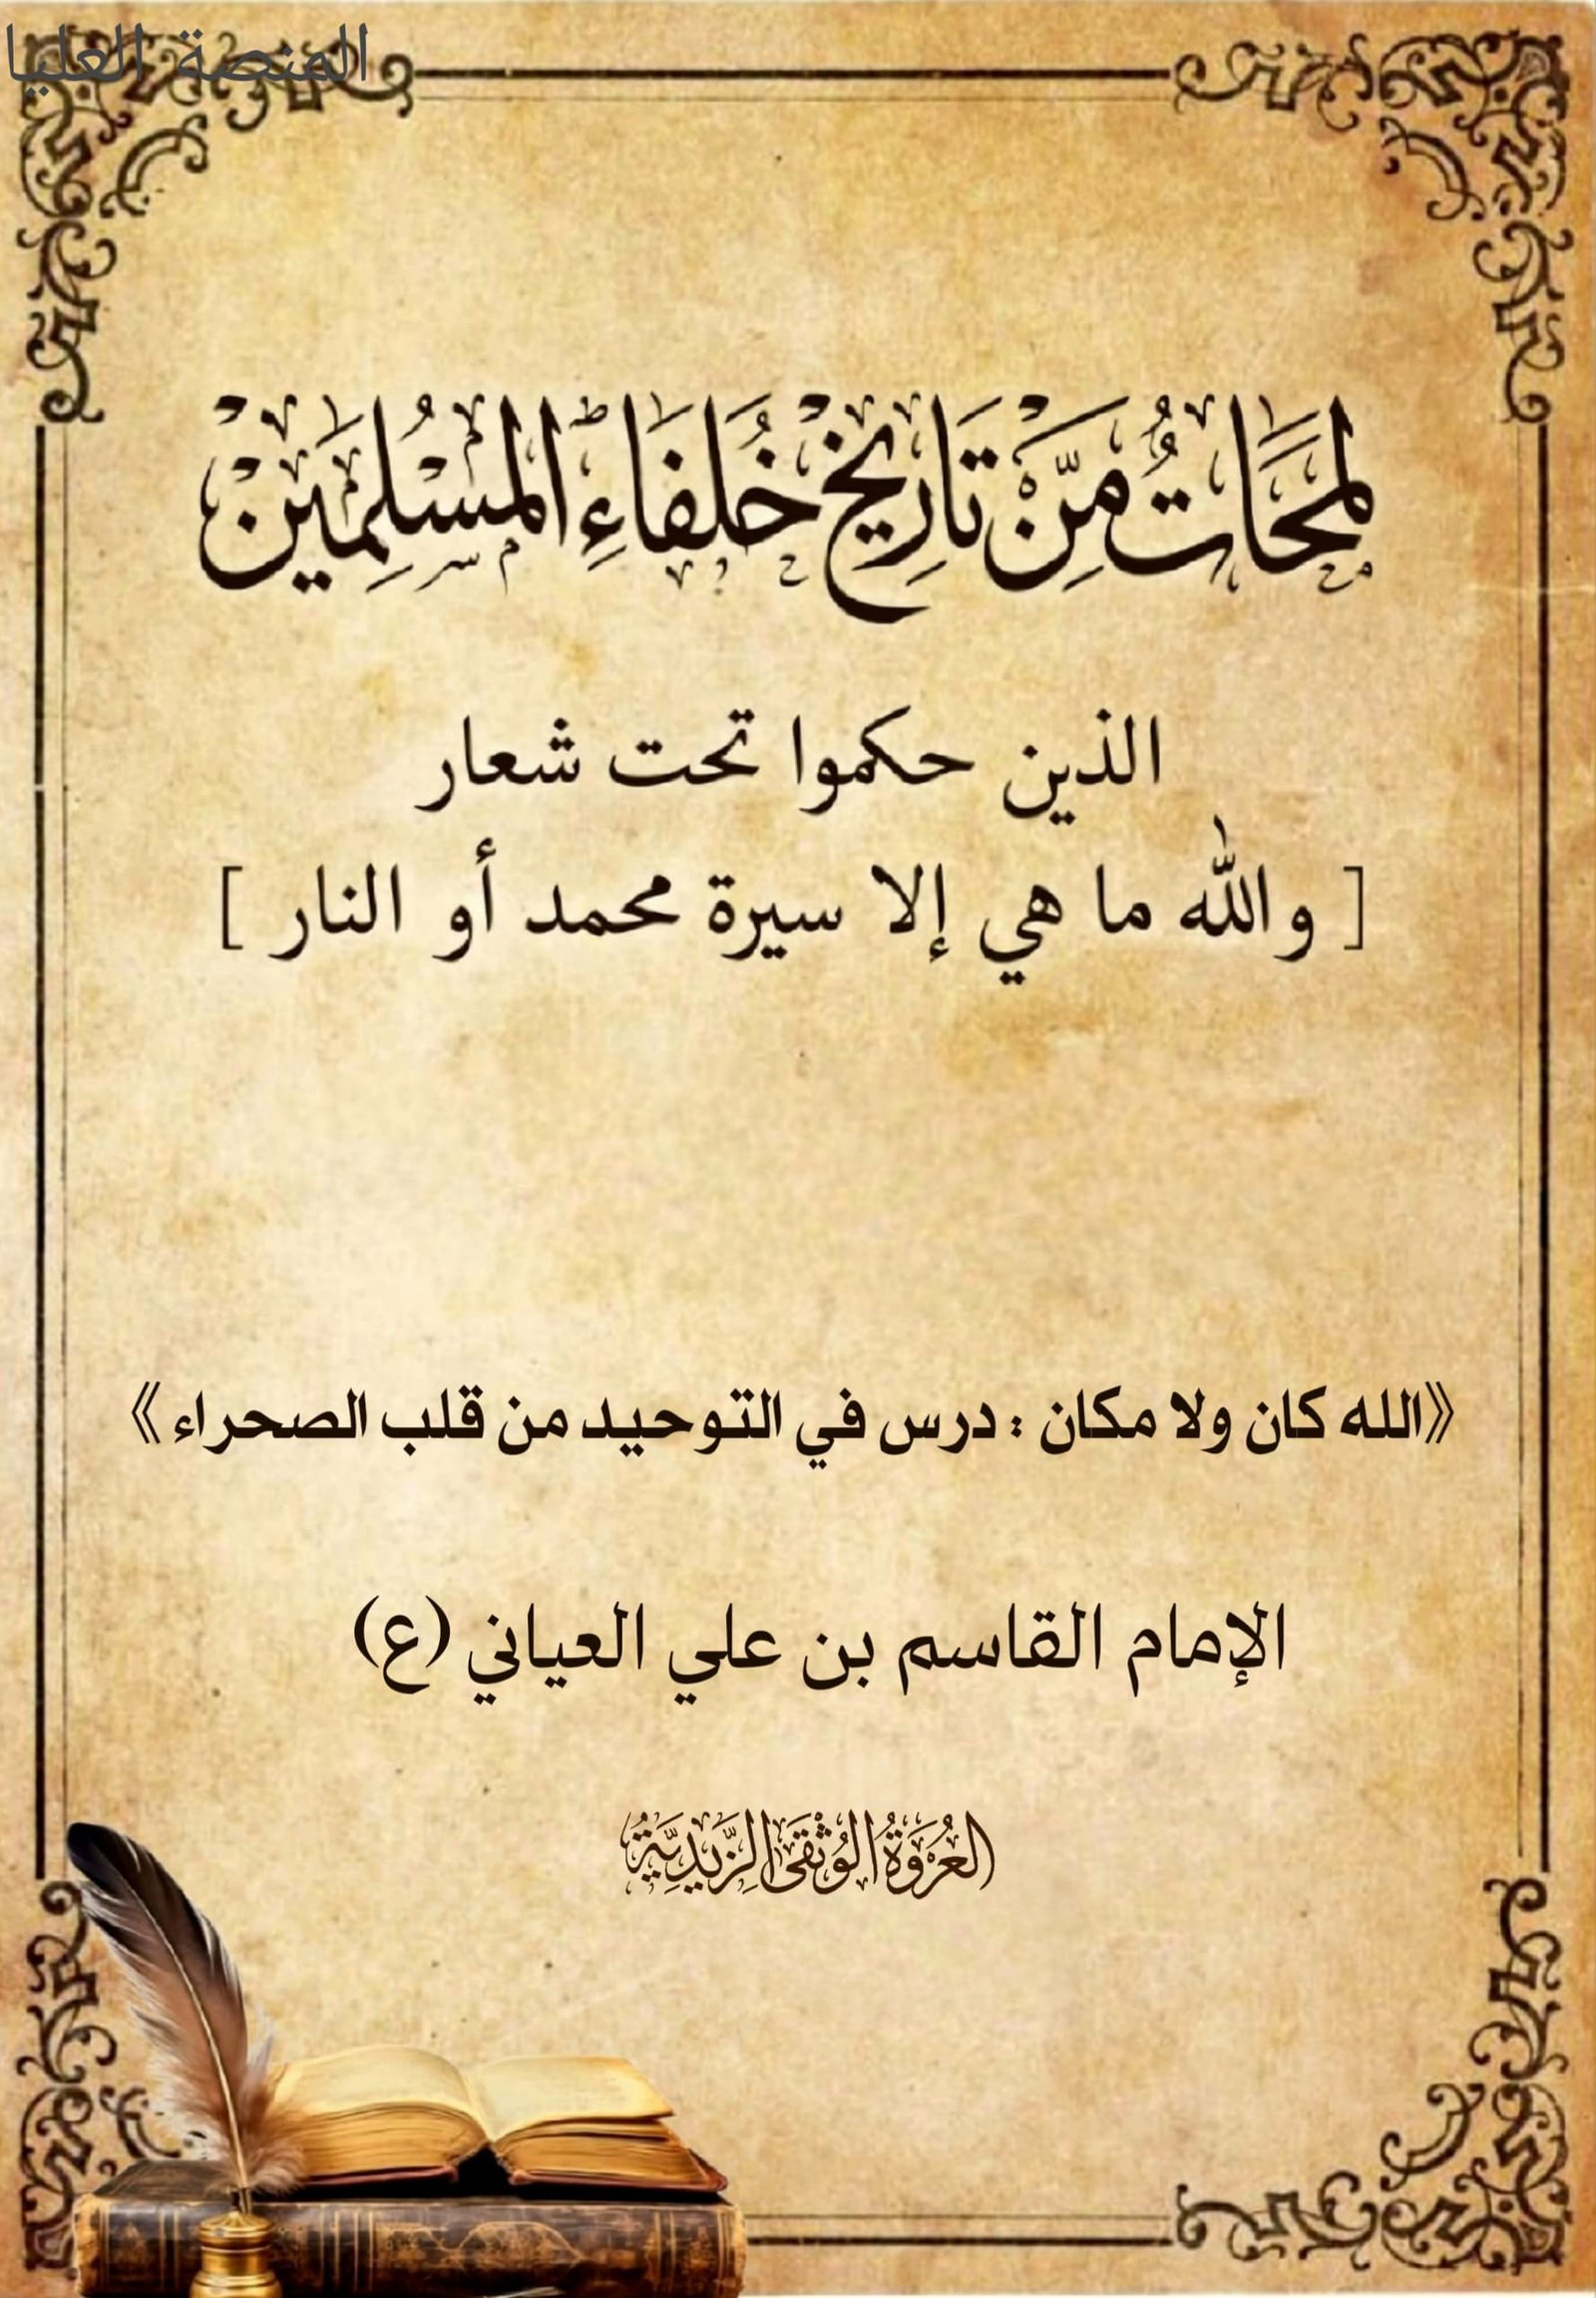 المنصة العليا
لمحات من تاريخ خلفاء المسلمين
الذين حكموا تحت شعار
[ والله ما هي إلا سيرة محمد أو النار ]
《الله كان ولا مكان : درس في التوحيد من قلب الصحراء》
الإمام القاسم بن علي العياني (ع)
العروة الوثقى الزيدية